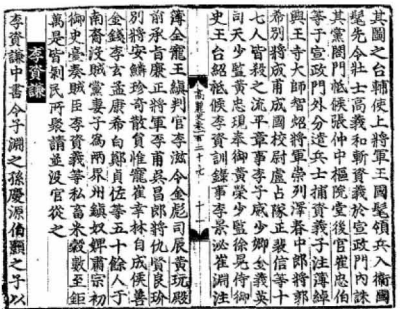 其圖之台輔使上將軍王國髦領兵入衛國
髦先令壯士高義和斬資義於宣政門內誅
其黨閤門祗候張仲中樞院堂後官崔忠伯
等于宣政門外分遣兵士捕資義子注簿綽
興王寺大師智炤將軍崇列澤春中郞將郭
希別將成甫成國校尉盧占隊正裴信等十
七人皆殺之流平章事李子威少卿金義英
司天少監黃忠現奉御黃榮少監徐晃侍御
史王台紹祗候李資訓錄事李景泌崔淵注
高麗史卷一百二十七 十一
簿金寵王縝判官李滋令金彪司辰黃玩殿
前承旨慶正將軍李甫吳昌郞將仇賢良玲
別將安鱗珍奇散員惟寵崔幸林自成侯善
金錢李玄孟康希白鄭貞佐等五十餘人于
南裔沒賊黨妻子爲兩界州鎭奴婢肅宗初
御史臺奏賊臣李資義等私畜米穀數至鉅
萬是皆剝民所聚請並沒官從之
李資謙
李資謙中書令子淵之孫慶源伯顥之子以